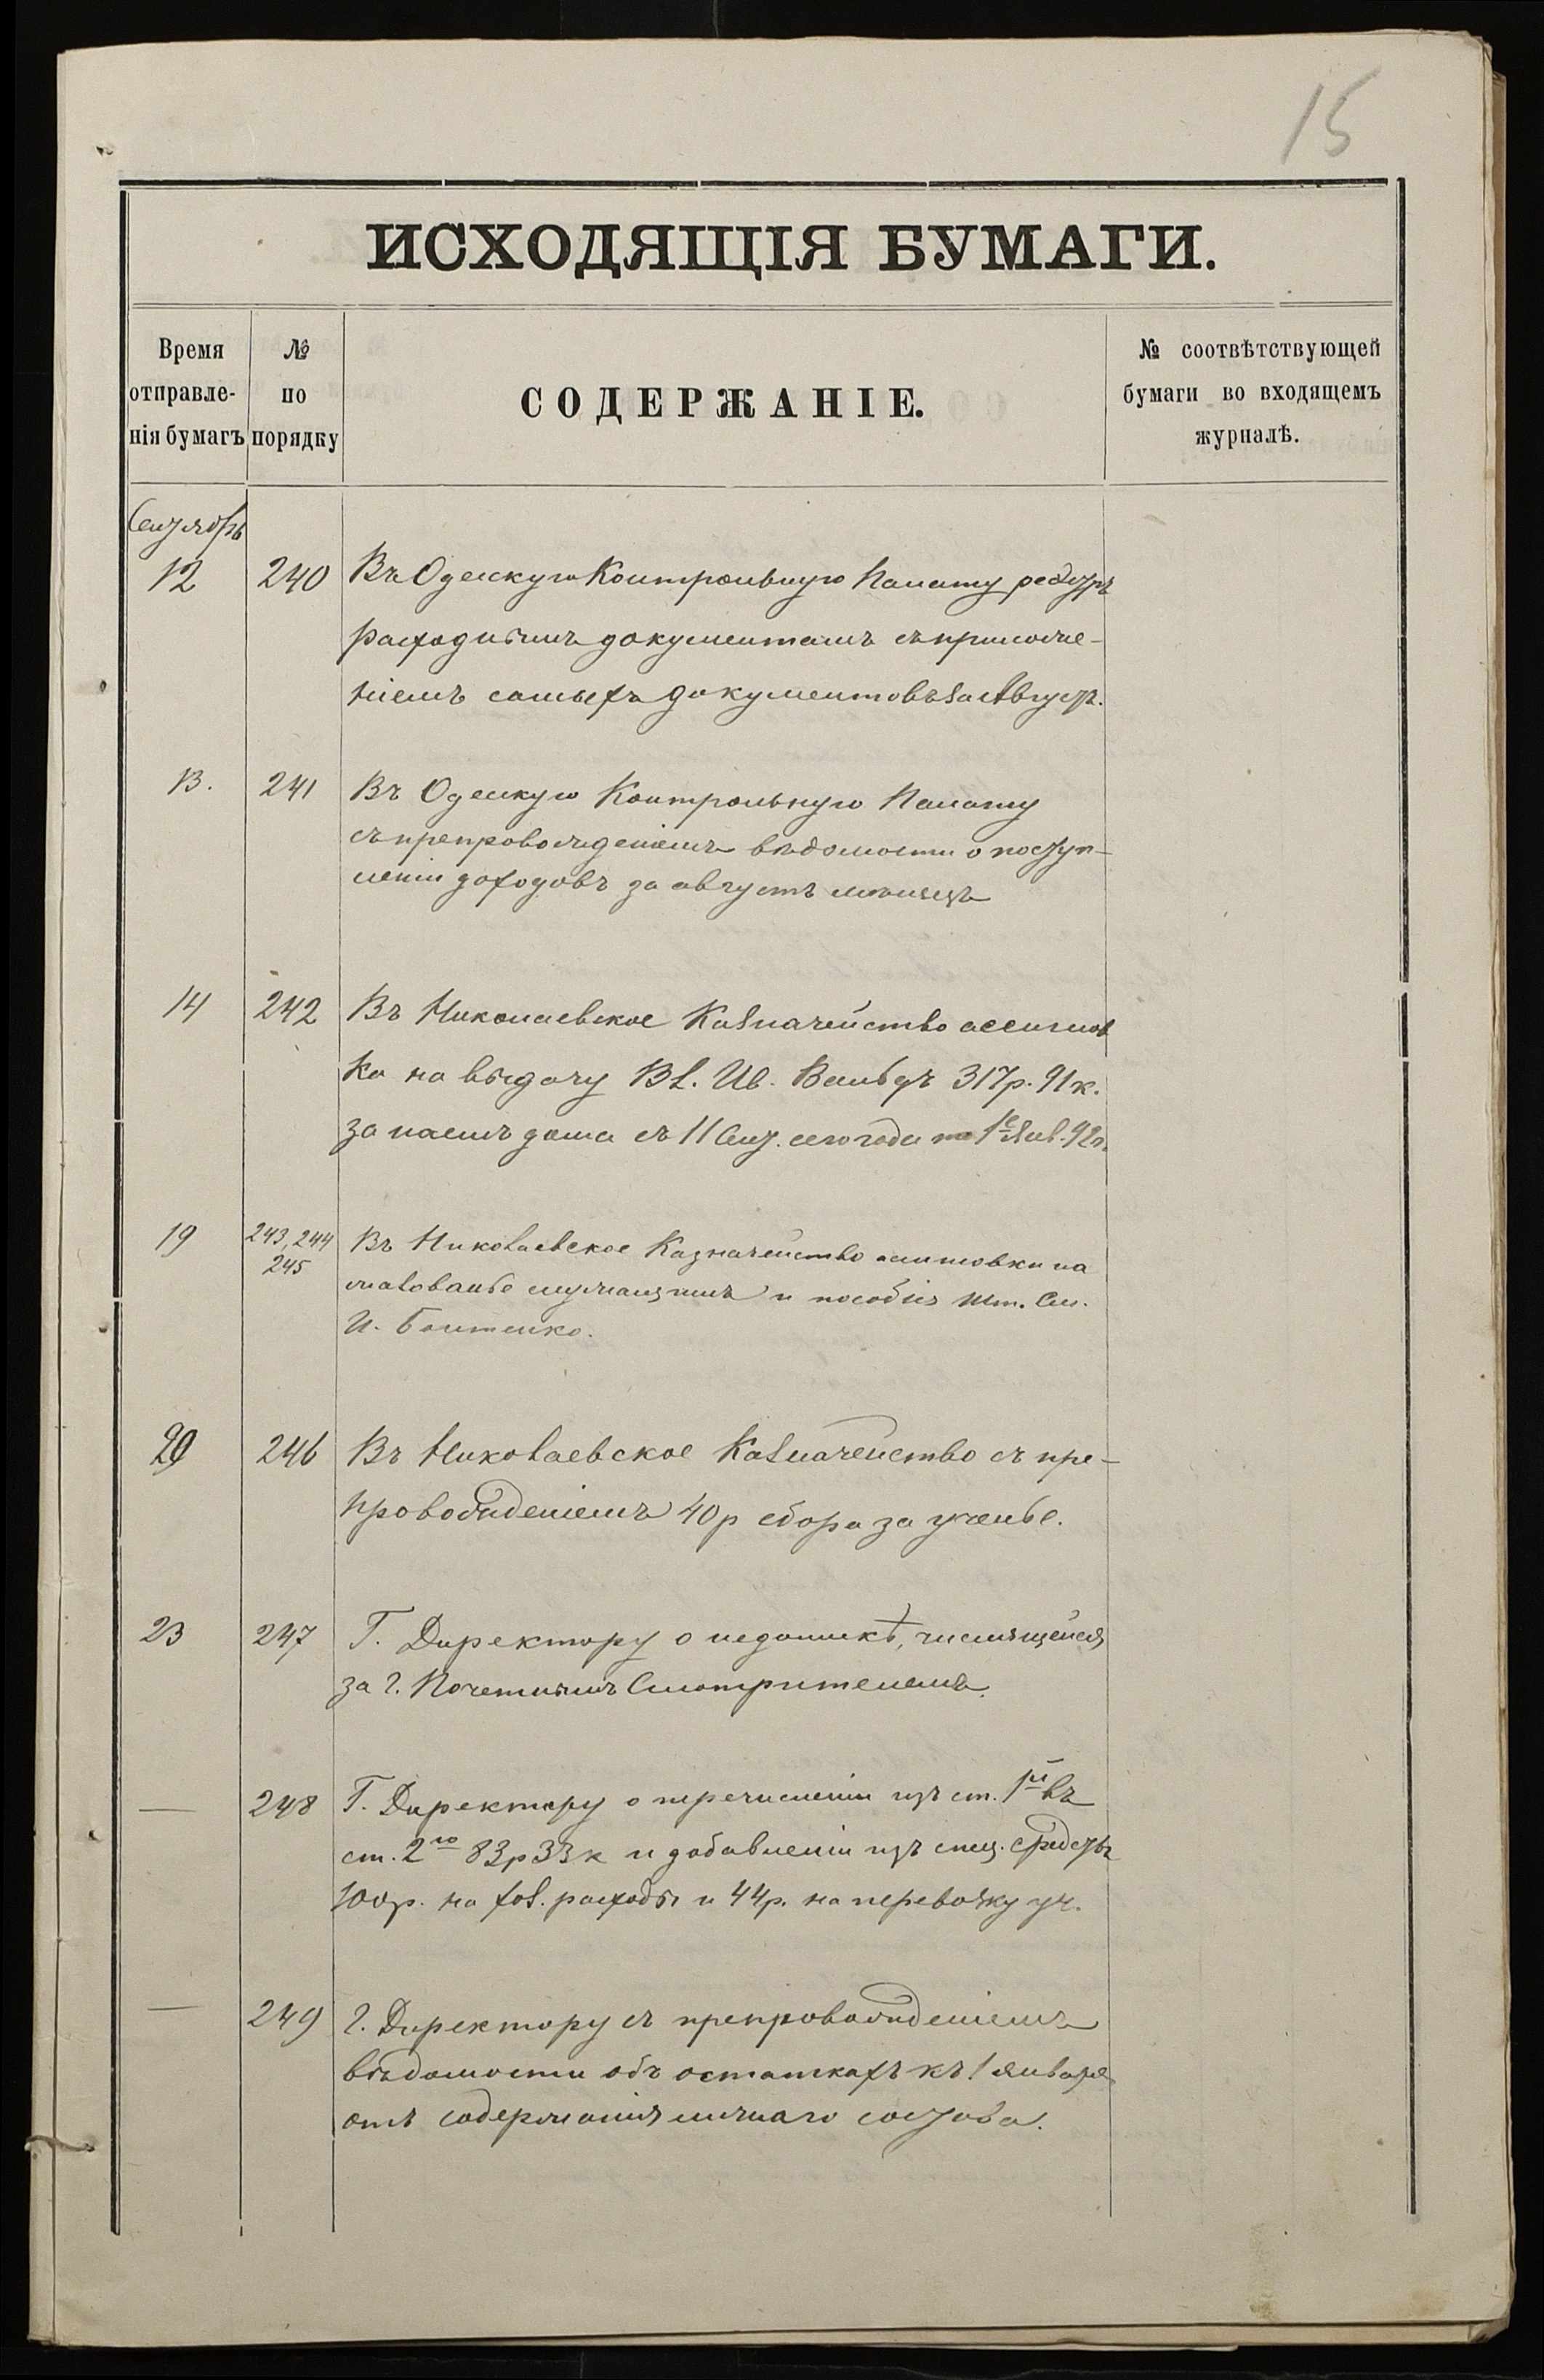 15
ИСХОДЯЩІЯ БУМАГИ.
Время отправле-нія бумагъ
№ по порядку
СОДЕРЖАНІЕ.
№ соотвѣтствующей бумаги во входящемъ журналѣ.
Сентябрь
12 240 Въ Одесскую Контрольную Палату реестръ
расходнымъ документамъ съ приложе-
ніемъ самыхъ документовъ за Августъ.
13. 241 Въ Одесскую Контрольную Палату
съ препровожденіемъ вѣдомости о поступ-
леніи доходовъ за августъ мѣсяцъ
14 242 Въ Николаевское Казначейство ассигнов
ка на выдачу Вл. Ив. 317р. 91к.
за наемъ дома съ 11 Сент. сего года по 1е Янв. 92г.
19 243, 244
245 Въ Николаевское Казначейство ассигновки на
жалованье служащимъ и пособія шт. См.
И. Бантенко.
20 246 Въ Николаевское Казначейство съ пре-
провожденіемъ 40р сбора за ученье.
23 247 Г. Директору о недоимкѣ, числящейся
за г. Почетнымъ Смотрителемъ.
— 248 Г. Директору о перечисленіи изъ ст. 1й въ
ст. 2ю 83р 33к и добавленіи изъ спец. средствъ
100р. на хоз. расходы и 44р. на перевозку уч.
— 249 Г. Директору съ препровожденіемъ
вѣдомости объ остаткахъ къ 1 января
отъ содержанія личнаго состава.